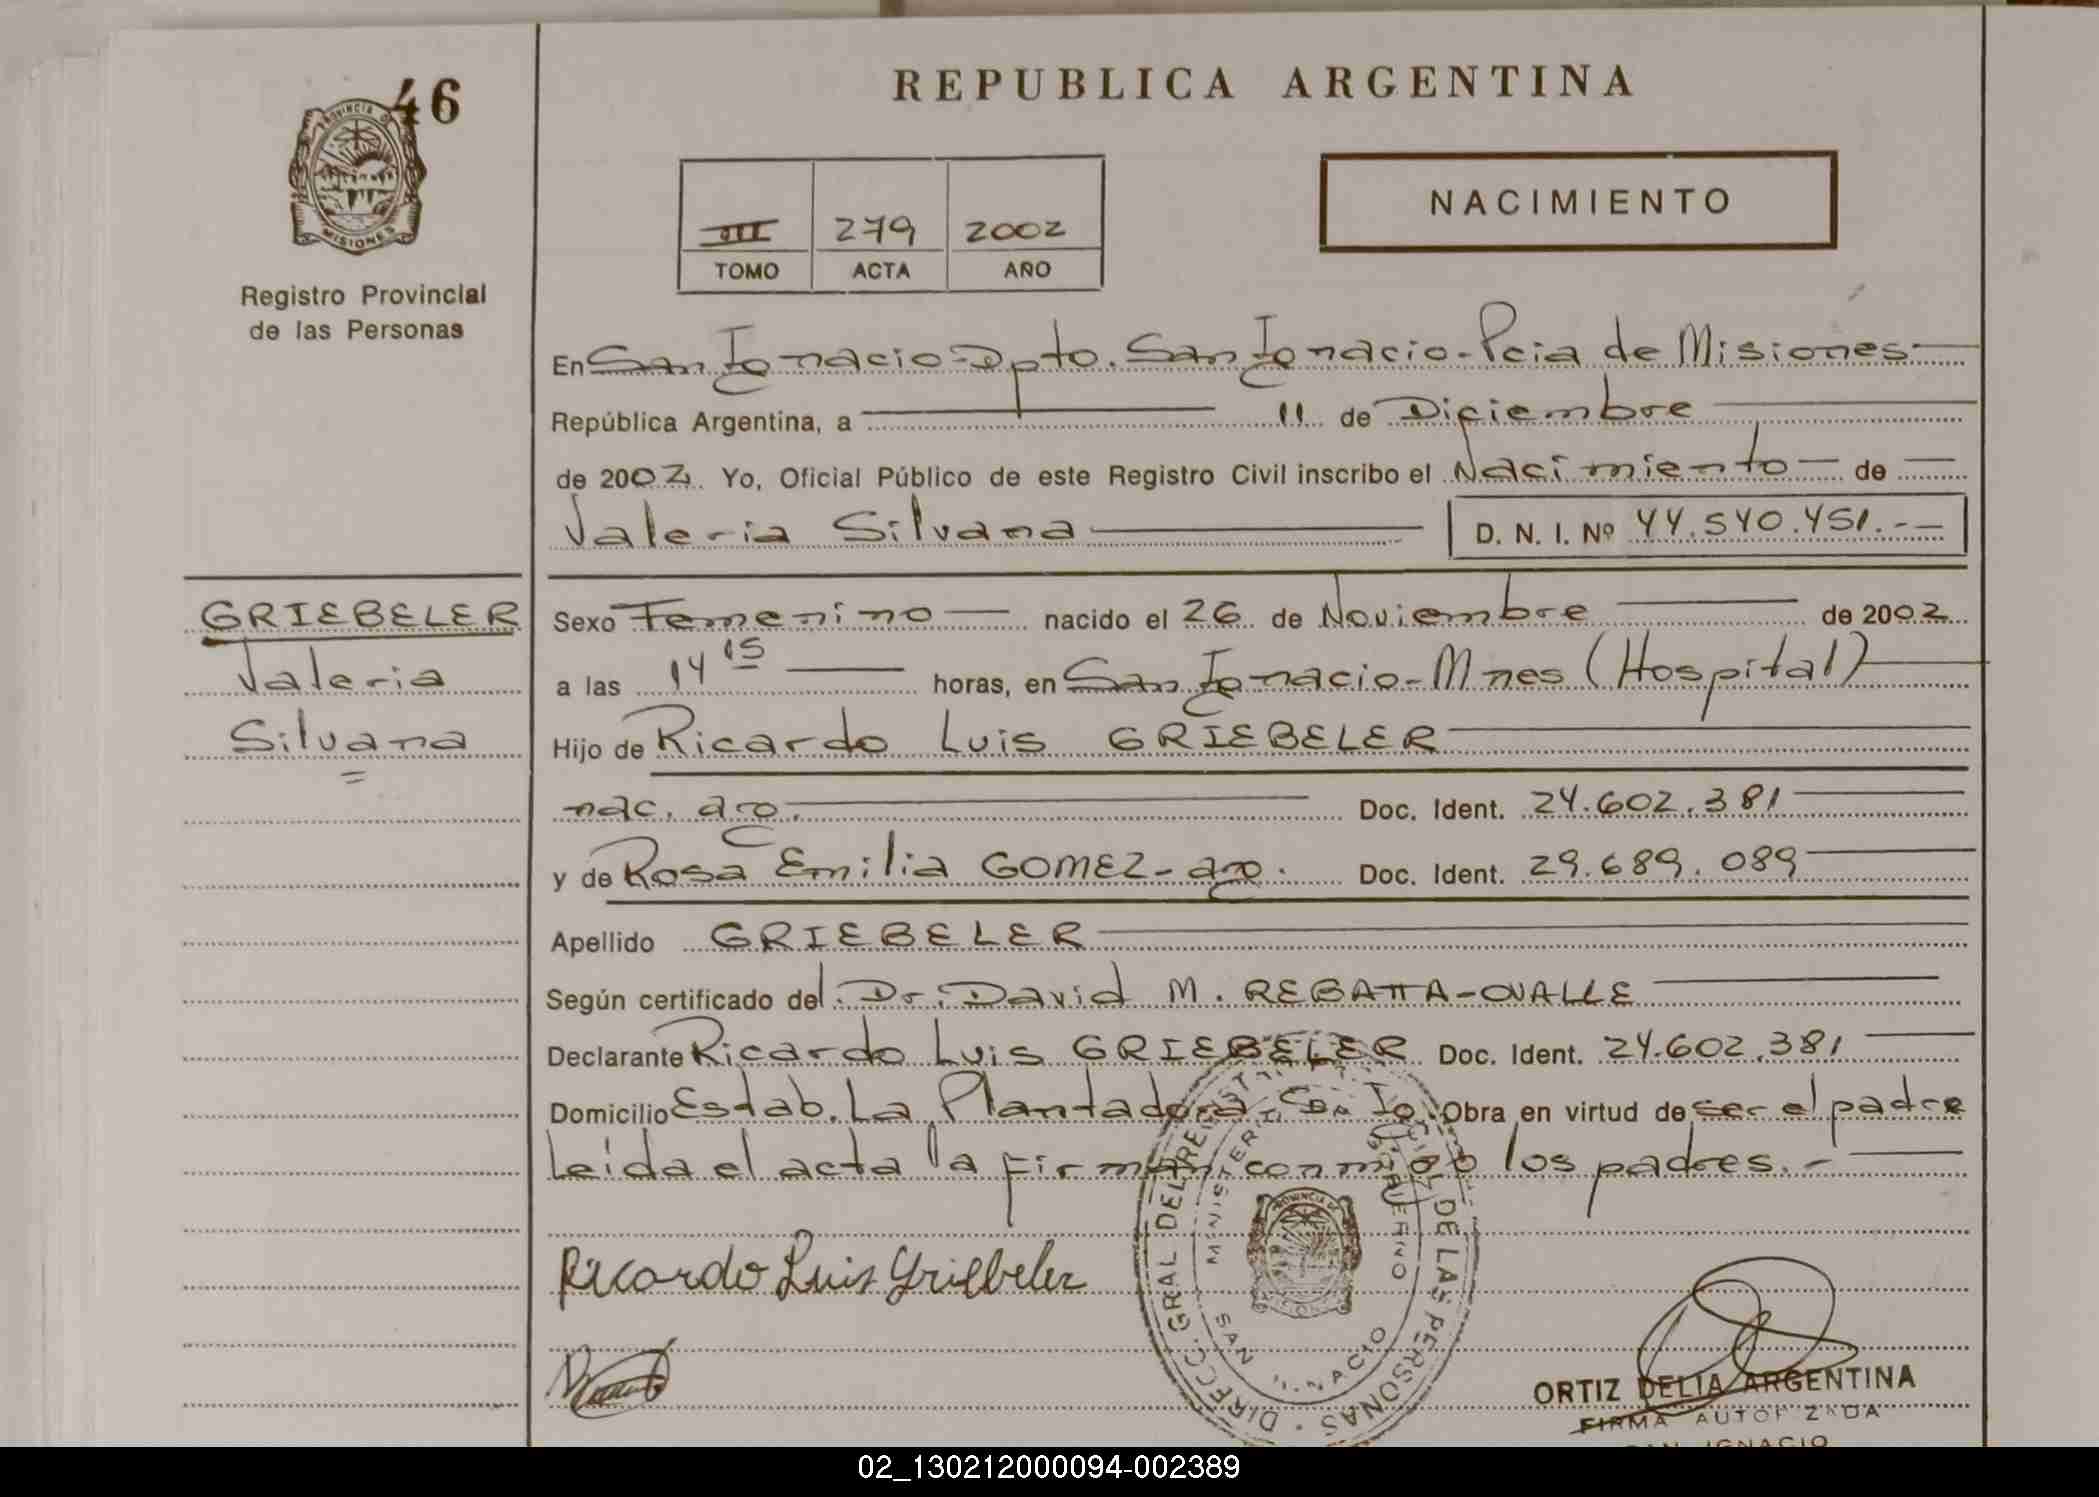 46
PROVINCIA DE
MISIONES
Registro Provincial
de las Personas
REPUBLICA ARGENTINA
III 279 2002
TOMO ACTA AÑO
NACIMIENTO
En San Ignacio-Dpto. San Ignacio-Pcia de Misiones
República Argentina, a 11 de Diciembre
de 2002. Yo, Oficial Público de este Registro Civil inscribo el Nacimiento de
Valeria Silvana D. N. I. Nº 44.540.451.-
GRIEBELER
Valeria
Silvana
Sexo Femenino nacido el 26 de Noviembre de 2002
a las 14 15 horas, en San Ignacio-Mnes (Hospital)
Hijo de Ricardo Luis GRIEBELER
nac. arg. Doc. Ident. 24.602.381
y de Rosa Emilia GOMEZ-arg. Doc. Ident. 29.689.089
Apellido GRIEBELER
Según certificado del Dr. David M. REBATTA-OVALLE
Declarante Ricardo Luis GRIEBELER Doc. Ident. 24.602.381
Domicilio Estab. La Plantadora San Ig. Obra en virtud de ser el padre
Leída el acta la firman conmigo los padres.-
Ricardo Luis Griebeler
DIRECC. GRAL DEL REGISTRO CIVIL DE LAS PERSONAS
MINISTERIO GOBIERNO
SAN IGNACIO
ORTIZ DELIA ARGENTINA
FIRMA AUTORIZADA
SAN IGNACIO
02_130212000094-002389